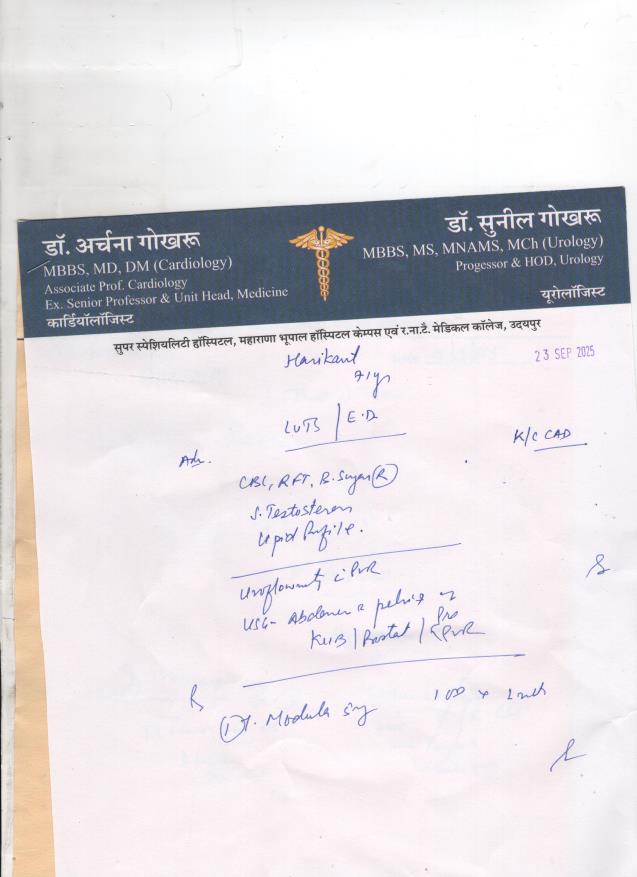 डॉ. अर्चना गोखरू
MBBS, MD, DM (Cardiology)
Associate Prof. Cardiology
Ex. Senior Professor & Unit Head, Medicine
कार्डियॉलॉजिस्ट
डॉ. सुनील गोखरू
MBBS, MS, MNAMS, MCh (Urology)
Progessor & HOD, Urology
यूरोलॉजिस्ट
सुपर स्पेशियलिटी हॉस्पिटल, महाराणा भूपाल हॉस्पिटल केम्पस एवं र.ना.टै. मेडिकल कॉलेज, उदयपुर
23 SEP 2025
Harikant
71yr
LUTS | E.D.
K/C CAD
Adv.
CBC, RFT, B. Sugar (R)
S. Testosteron
Lipid Profile.
Uroflowmetry c PVR
USG - Abdomen & pelvis
KUB | Prostat | PVR
T. Modula 5mg